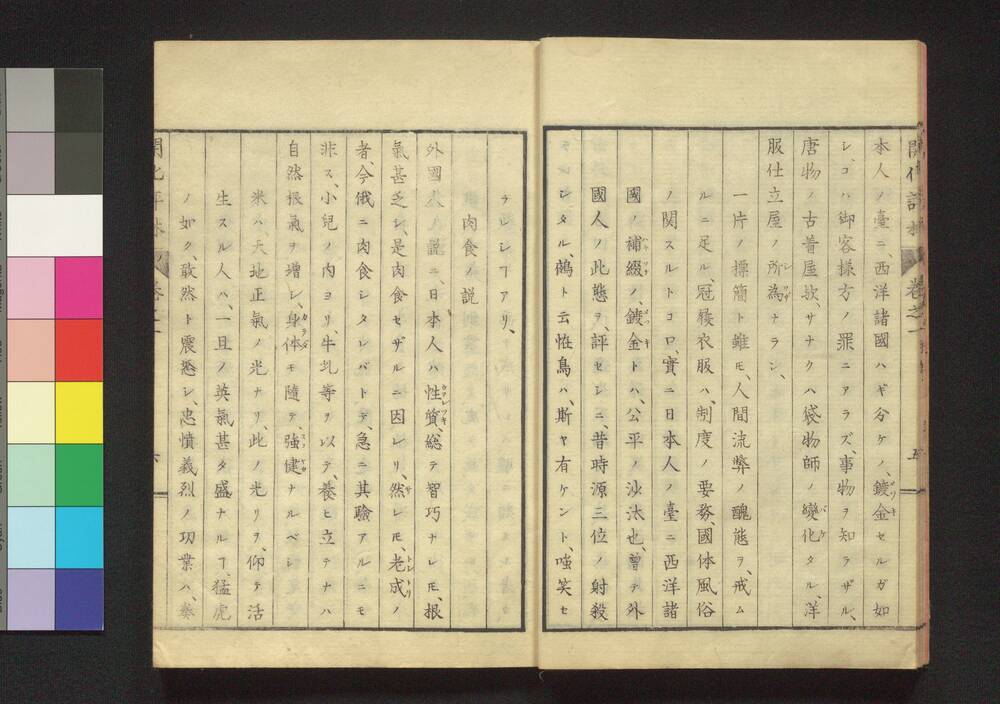 本人ノ臺ニ、西洋諸國ハギ分ケノ、鍍金セルガ如
シ、コハ御客樣方ノ罪ニアラズ、事物ヲ知ラザル、
唐物ノ古着屋欤、サナクハ袋物師ノ變化タル、洋
服仕立屋ノ所為ナラン、
一片ノ標簡ト雖モ、人間流弊ノ醜態ヲ、戒ム
ルニ足ル、冠履衣服ハ、制度ノ要務、國体風俗
ノ関スルトコロ、實ニ日本人ノ臺ニ西洋諸
國ノ補綴ノ、鍍金トハ、公平ノ沙汰也、曾テ外
國人ノ此態ヲ、評セシニ、昔時源三位ノ射殺
シタル、鵺ト云怪鳥ハ、斯ヤ有ケント、嗤笑セ
ラレシヿアリ、
肉食ノ説
外國人ノ説ニ、日本人ハ性質、総テ智巧ナレ𪜈、根
氣甚乏シ、是肉食セザルニ因レリ、然レ𪜈、老成ノ
者、今俄ニ肉食シタレバトテ、急ニ其驗アルニモ
非ス、小兒ノ内ヨリ、牛乳等ヲ以テ、養ヒ立テナハ
自然根氣ヲ増シ、身体モ隨テ、強健ナルベシ
米ハ、天地正氣ノ光ナリ、此ノ光リヲ、仰テ活
生スル人ハ、一旦ノ英氣甚タ盛ナルヿ、猛虎
ノ如ク、敢然ト震怒シ、忠憤義烈ノ功業ハ、